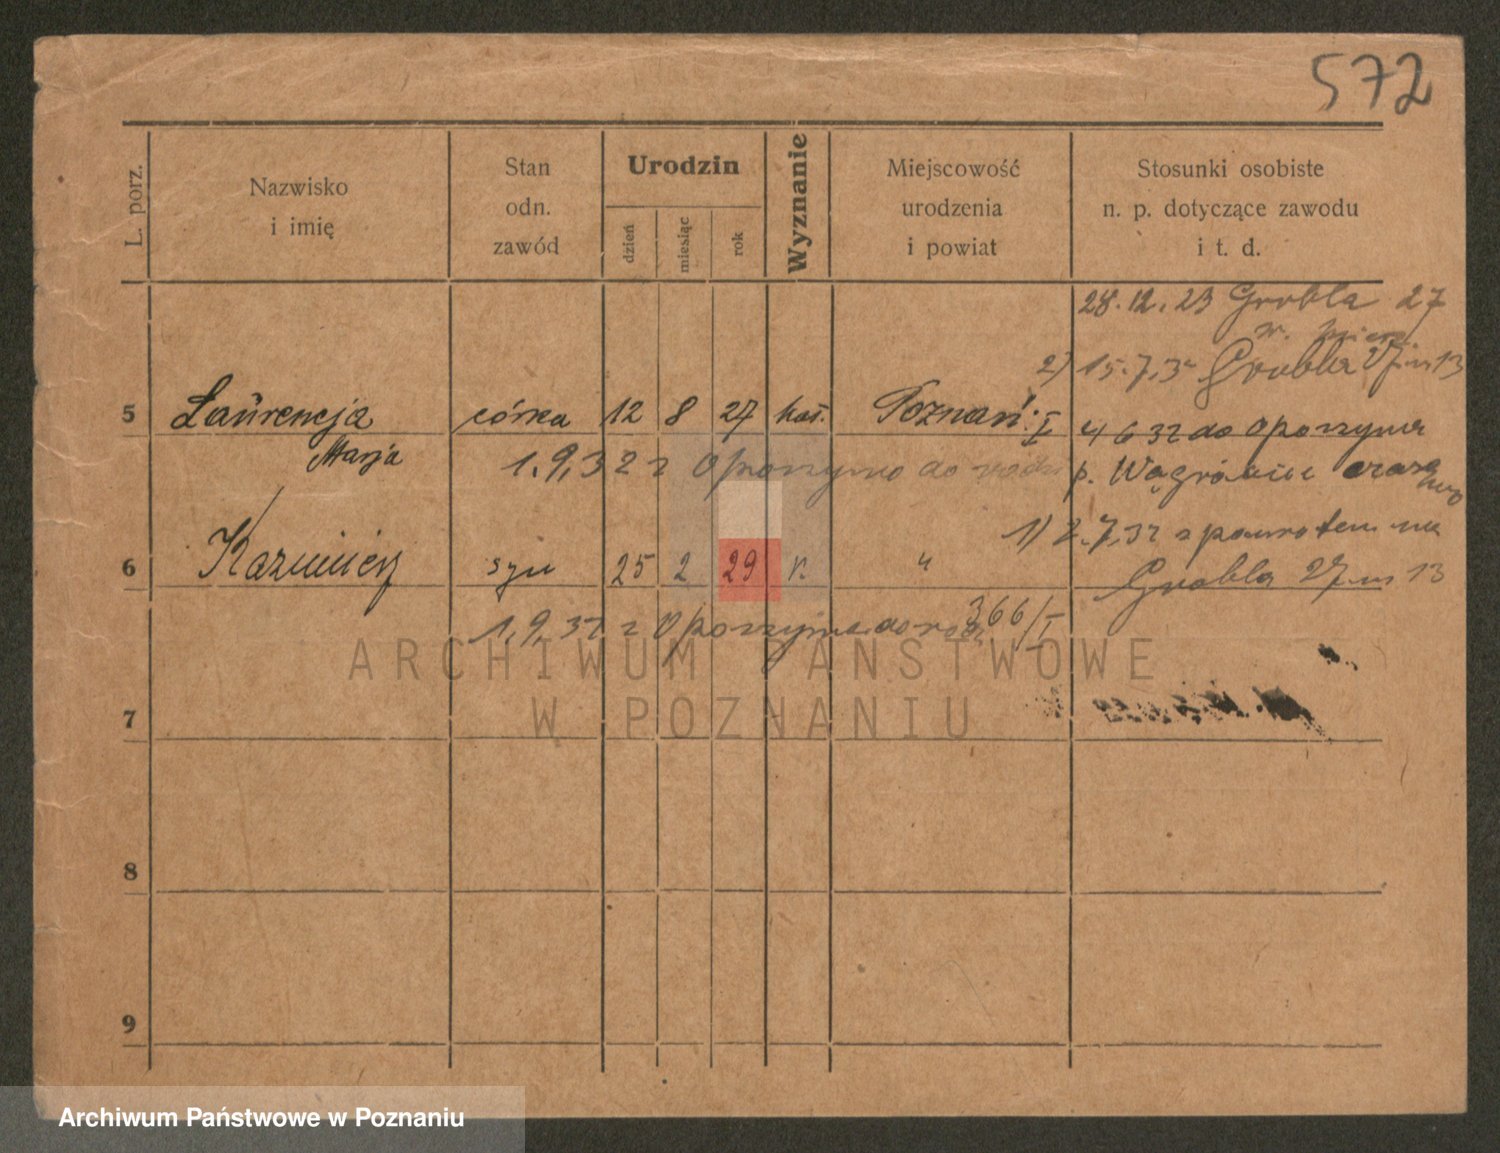 572
L. porz.
Nazwisko
i imię
Stan
odn.
zawód
Urodzin
dzień
miesiąc
rok
Wyznanie
Miejscowość
urodzenia
i powiat
Stosunki osobiste
n. p. dotyczące zawodu
i t. d.
28.12.23 Grobla 27
2) 15.7.32 Grobla 27 m 13
5 Laurencja córka 12 8 27 kat. Poznań I 4 6 32 do Oporzyna
Marja 1.9.32 z Oporzyna do p. Wągrowiec
1) 2.7.32 z powrotem na
6 Kazimierz syn 25 2 29 k. " Grobla 27 m 13
1.9.32 z Oporzyna do 366/I
ARCHIWUM PAŃSTWOWE
W POZNANIU
7
8
9
Archiwum Państwowe w Poznaniu